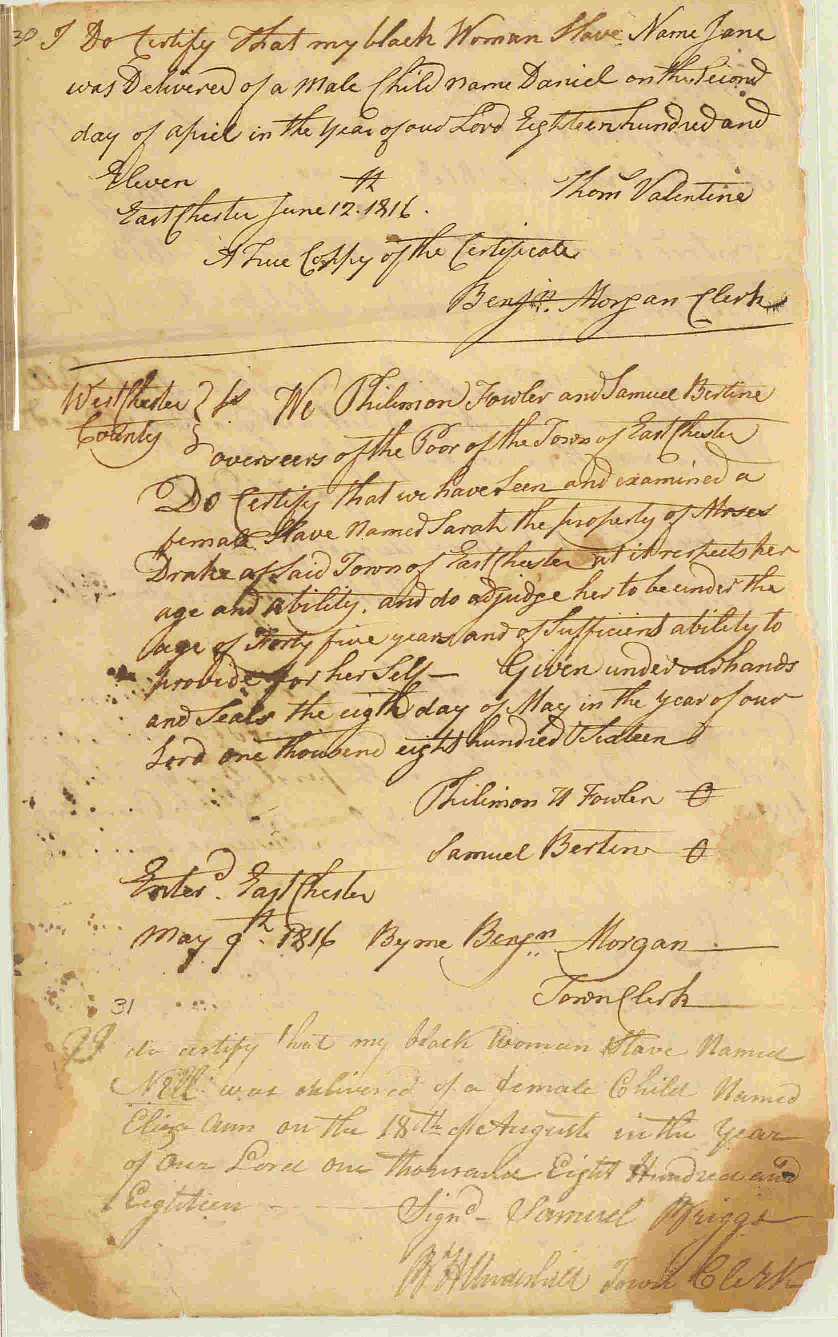 30 I Do Certify that my black Woman Slave Name Jane
was Delivered of a male Child name Daniel on the Second
day of april in the year of our Lord Eighteen hundred and
Eleven
Thom Valentine
EastChester June 12th. 1816.
A True Coppy of the Certificate
Benjn. Morgan Clerk
WestChester } ss We Philimon Fowler and Samuel Bertine
County } overseers of the Poor of the Town of EastChester
Do Certify that we have Seen and examined a
female Slave Named Sarah the property of Moses
Drake of Said Town of EastChester as it respects her
age and ability, and do adjudge her to be under the
age of Forty five years and of Sufficient ability to
provide for her Self — Given under our hands
and Seals the eigth day of May in the year of our
Lord one thousend eight hundred Sixteen
Philimon Fowler O
Samuel Bertine O
Enterd. EastChester
May 9th. 1816 By me Benjn Morgan
Town Clerk
31
I do certify that my black Woman Slave Named
Nell was delivered of a female Child Named
Eliza Ann on the 18th of August in the Year
of Our Lord one thousand Eight Hundred and
Eighteen
Signd - Samuel Briggs
Underhill Town Clerk